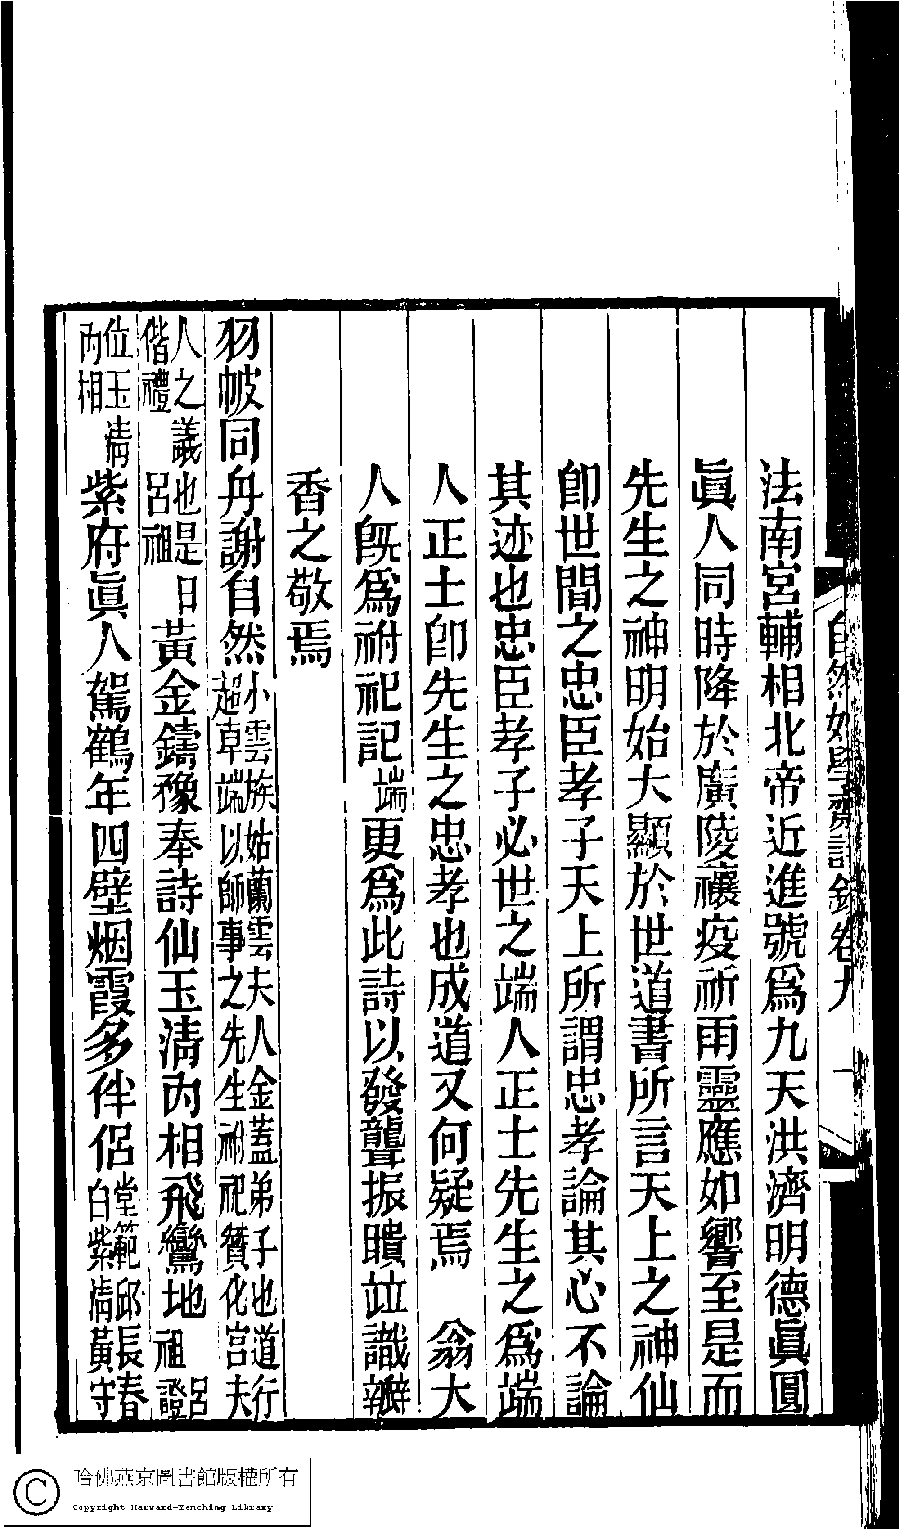 自然好學齋詩鈔卷九 一
法南宮輔相北帝近進號爲九天洪濟明德眞圓
眞人同時降於廣陵禳疫祈雨靈應如響至是而
先生之神明始大顯於世道書所言天上之神仙
卽世間之忠臣孝子天上所謂忠孝論其心不論
其迹也忠臣孝子必世之端人正士先生之爲端
人正士卽先生之忠孝也成道又何疑焉 翁大
人旣爲祔祀記端更爲此詩以發聾振聵竝識瓣
香之敬焉
羽帔同丹謝自然小雲族姑蘭雲夫人金蓋弟子也道行超卓端以師事之先生祔祀贊化宮夫
人之議也是日偕禮 呂祖黃金鑄像奉詩仙玉清內相飛鸞地呂祖證
位玉清內相紫府眞人駕鶴年四壁烟霞多伴侶堂範邱長春白紫清黃守
哈佛燕京圖書館版權所有
Copyright Harvard-Yenching Library